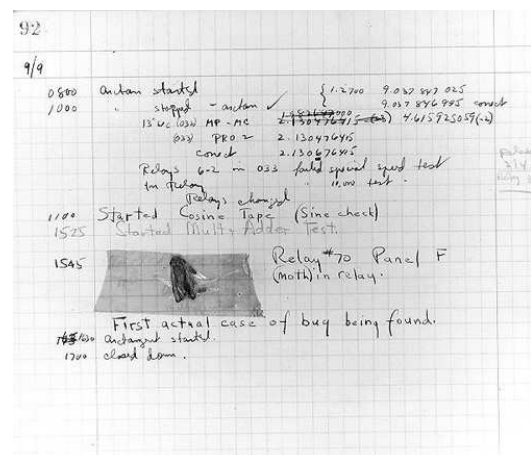 92
9/9
0800 antan started { 1.2700 9.037 847 025
1000 " stopped - antan ✓ 9.037 846 995 correct
13"uc (032) MP - MC 2.130476415 4.615925059(-2)
(033) PRO 2 2.130476415
correct 2.130676415
Relays 6-2 in 033 failed special speed test
in relay " 11,000 test.
Relays changed
1100 Started Cosine Tape (Sine check)
1525 Started Mult+Adder Test.
1545 Relay #70 Panel F
(Moth) in relay.
First actual case of bug being found.
1630 antangent started.
1700 closed down.